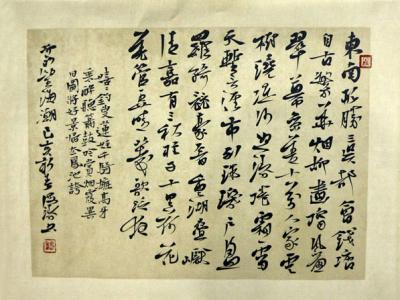 東南形勝三吳都會錢塘
自古繁華烟柳畫橋風簾
翠幕參差十萬人家雲
樹繞堤沙怒濤捲霜雪
天塹無涯市列珠璣戶盈
羅綺競豪奢重湖疊巘
清嘉有三秋桂子十里荷花
羌管弄晴菱歌泛夜
嘻嘻釣叟蓮娃千騎擁高牙
乘醉聽簫鼓吟賞烟霞異
日圖將好景歸去鳳池誇
望海潮己亥